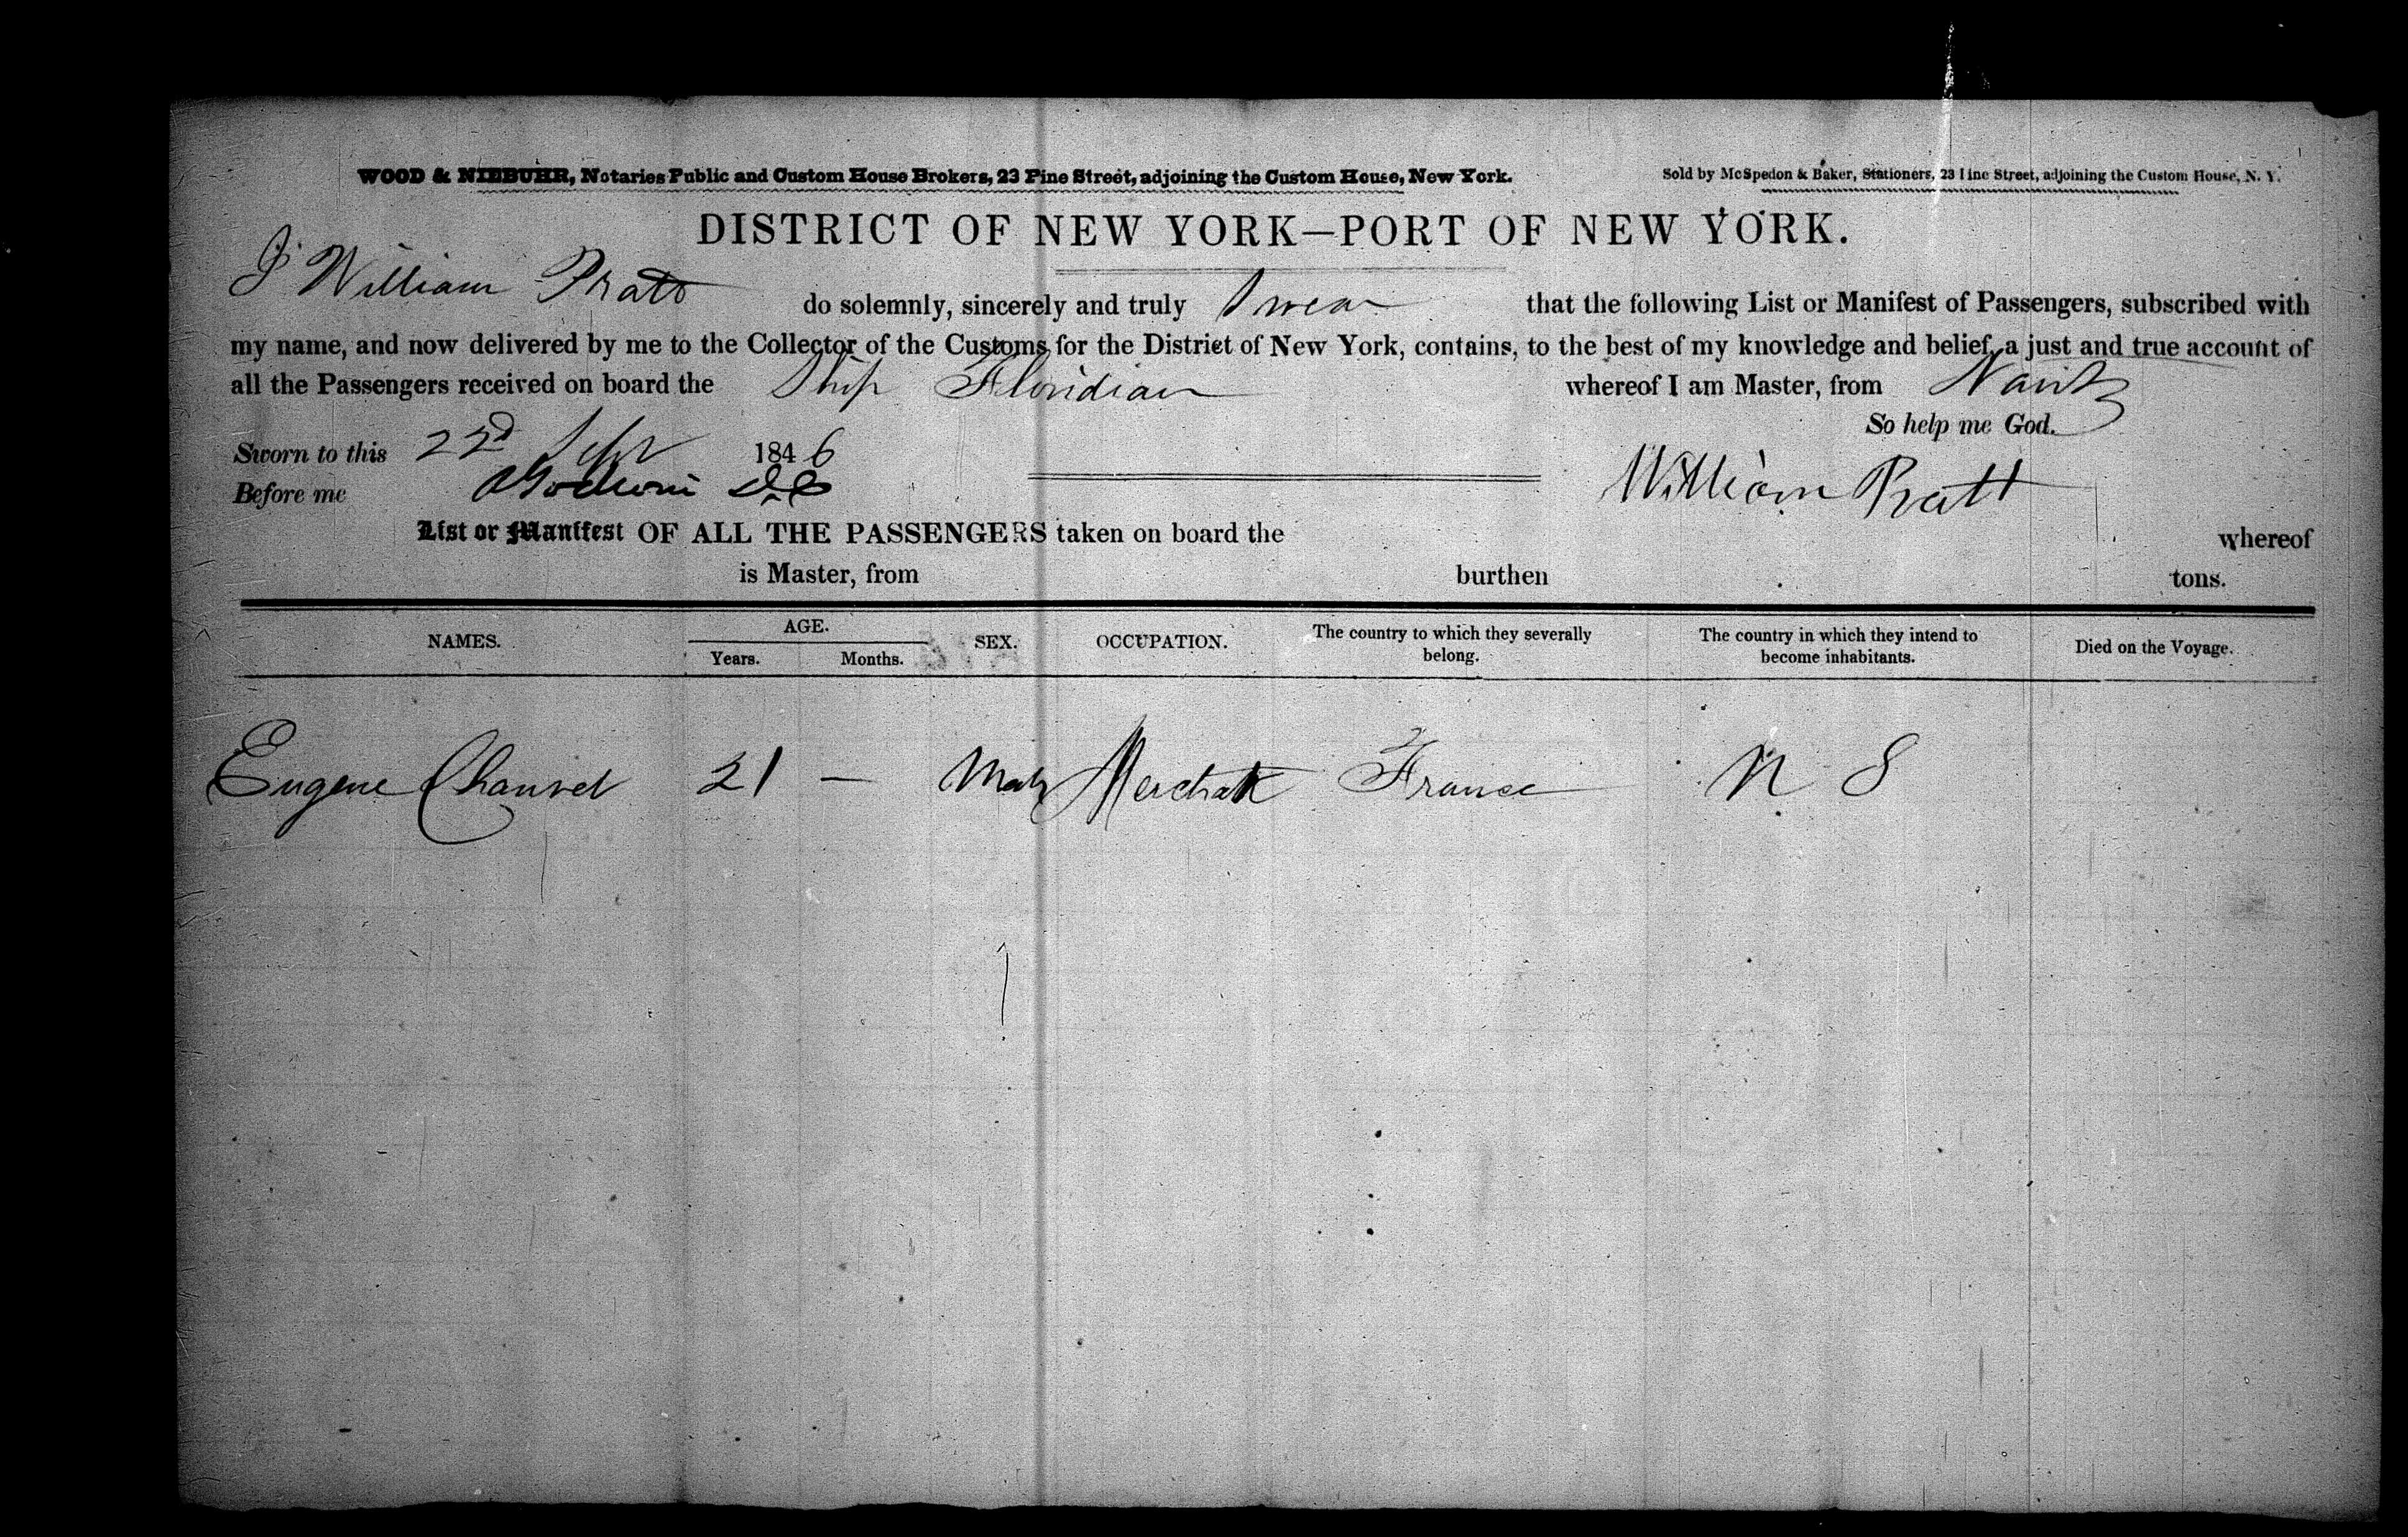 WOOD & NIEBUHR, Notaries Public and Custom House Brokers, 23 Pine Street, adjoining the Custom House, New York.
Sold by McSpedon & Baker, Stationers, 23 Pine Street, adjoining the Custom House, N. Y.
DISTRICT OF NEW YORK—PORT OF NEW YORK.
I William Pratt do solemnly, sincerely and truly Swear that the following List or Manifest of Passengers, subscribed with
my name, and now delivered by me to the Collector of the Customs for the District of New York, contains, to the best of my knowledge and belief, a just and true account of
all the Passengers received on board the Ship Floridian whereof I am Master, from Nantz
So help me God.
Sworn to this 22d Sept 1846
Before me
William Pratt
List or Manifest OF ALL THE PASSENGERS taken on board the whereof
is Master, from burthen tons.
NAMES. AGE. Years. Months. SEX. OCCUPATION. The country to which they severally belong. The country in which they intend to become inhabitants. Died on the Voyage.
Eugene 21 — Male Merchat France